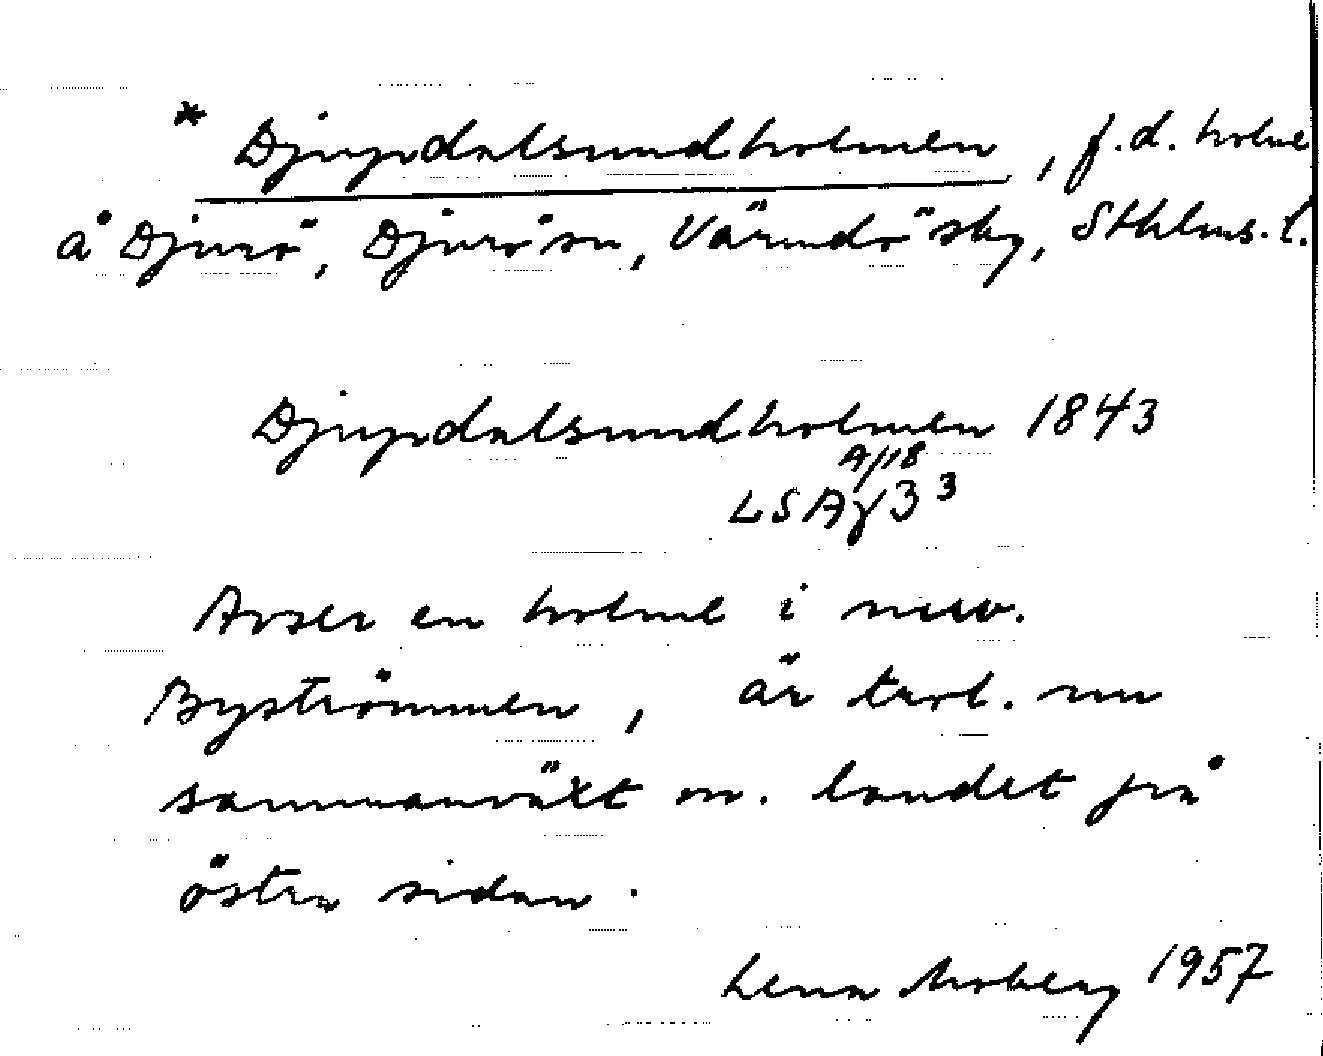 * Djupdalsundholmen, f.d. holme
å Djurö, Djurö sn, Värmdö sky, Sthlms. l.
Djupdalsundholmen 1843
A/18
LSA 33
Avser en holme i nuv.
Byströmmen, är trol. nu
sammanväxt m. landet på
östra sidan.
Lena Moberg 1957